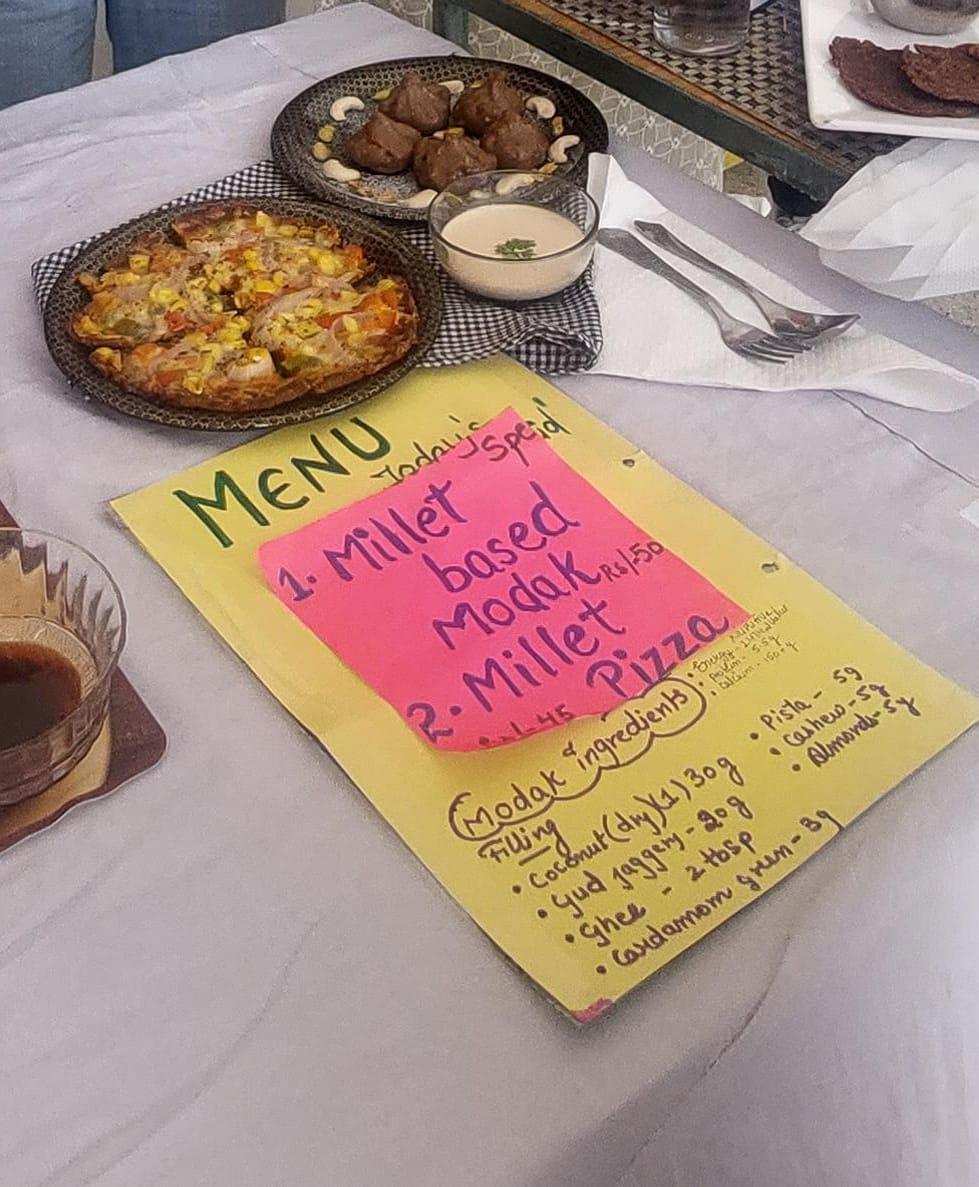 MENU
Today's
Special
1. Millet
based
Modak Rs/-50
2. Millet
Pizza
45
Modak ingredients
Filling
• Coconut (dry)(1) 30g
• Gud Jaggery - 20g
• Ghee - 2 tbsp
• Cardamom green - 3g
• Pista - 5g
• Cashew - 5g
• Almonds - 5g
• Energy -
• Protein - 5.5g
• Calcium -